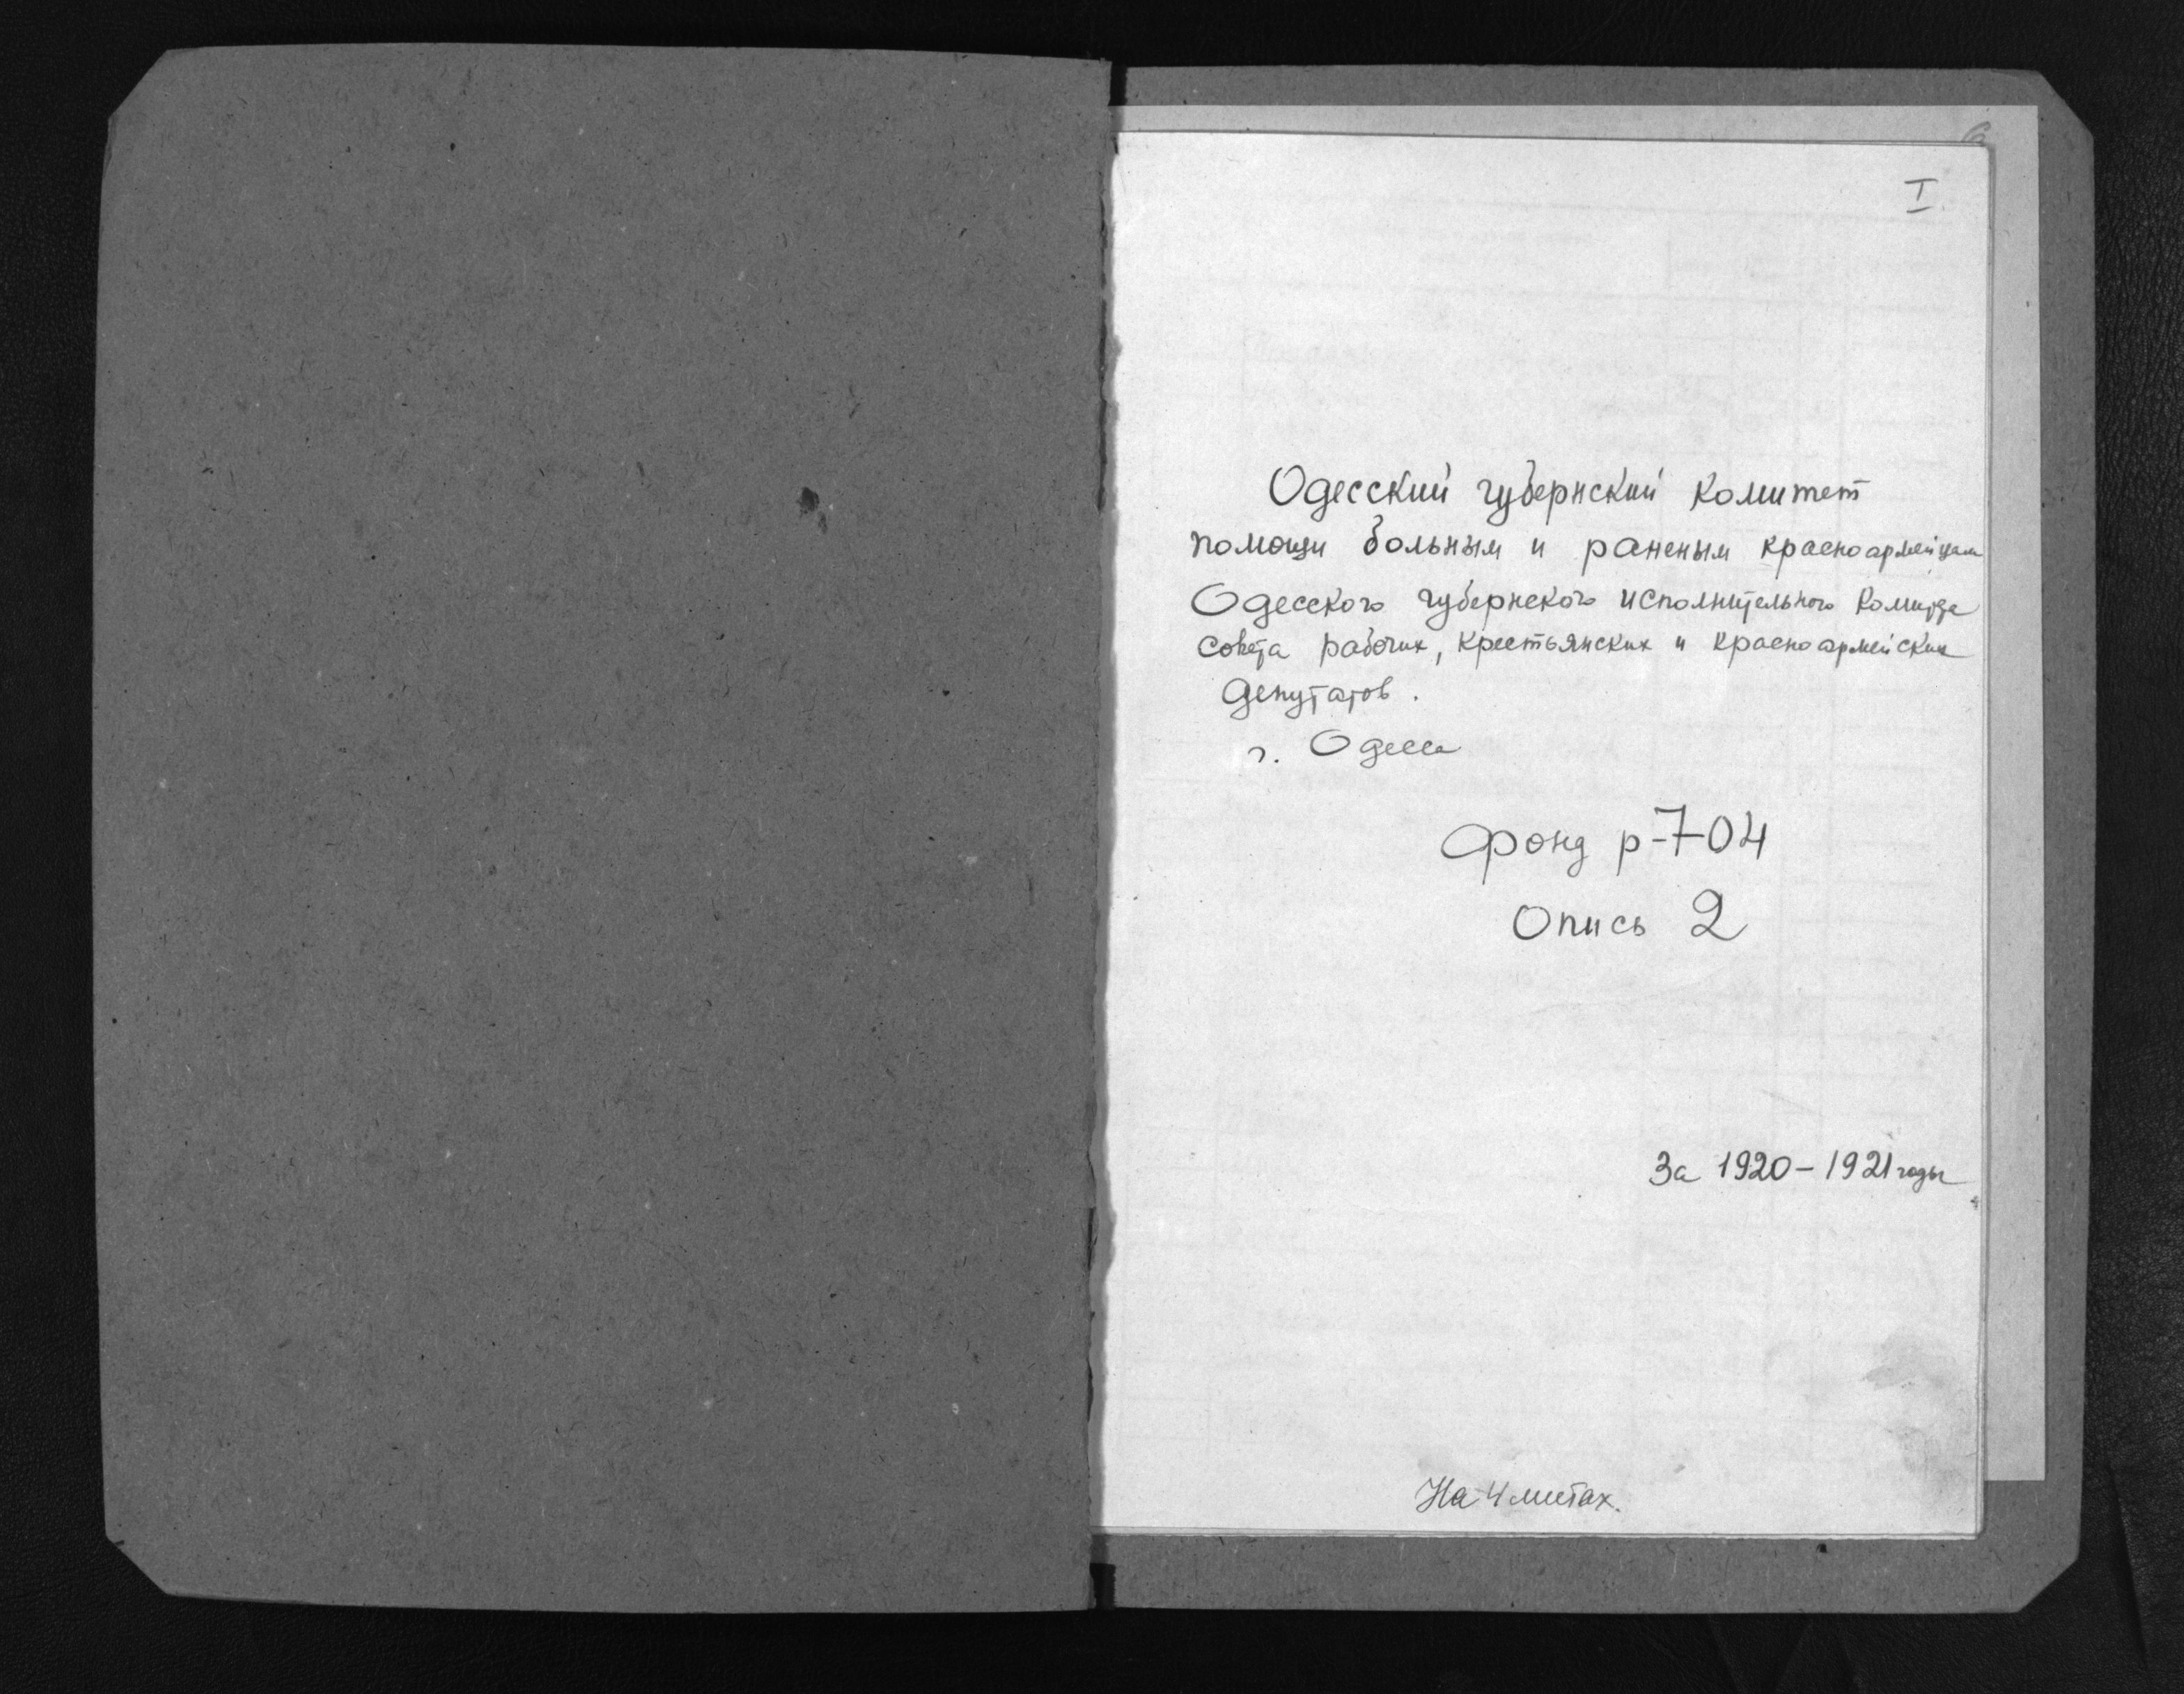 I
Одесский губернский комитет
помощи больным и раненым красноармейцам
Одесского губернского исполнительного комитета
совета рабочих, крестьянских и красноармейских
депутатов.
г. Одесса
Фонд р-704
Опись 2
За 1920-1921 годы
На 4 листах.